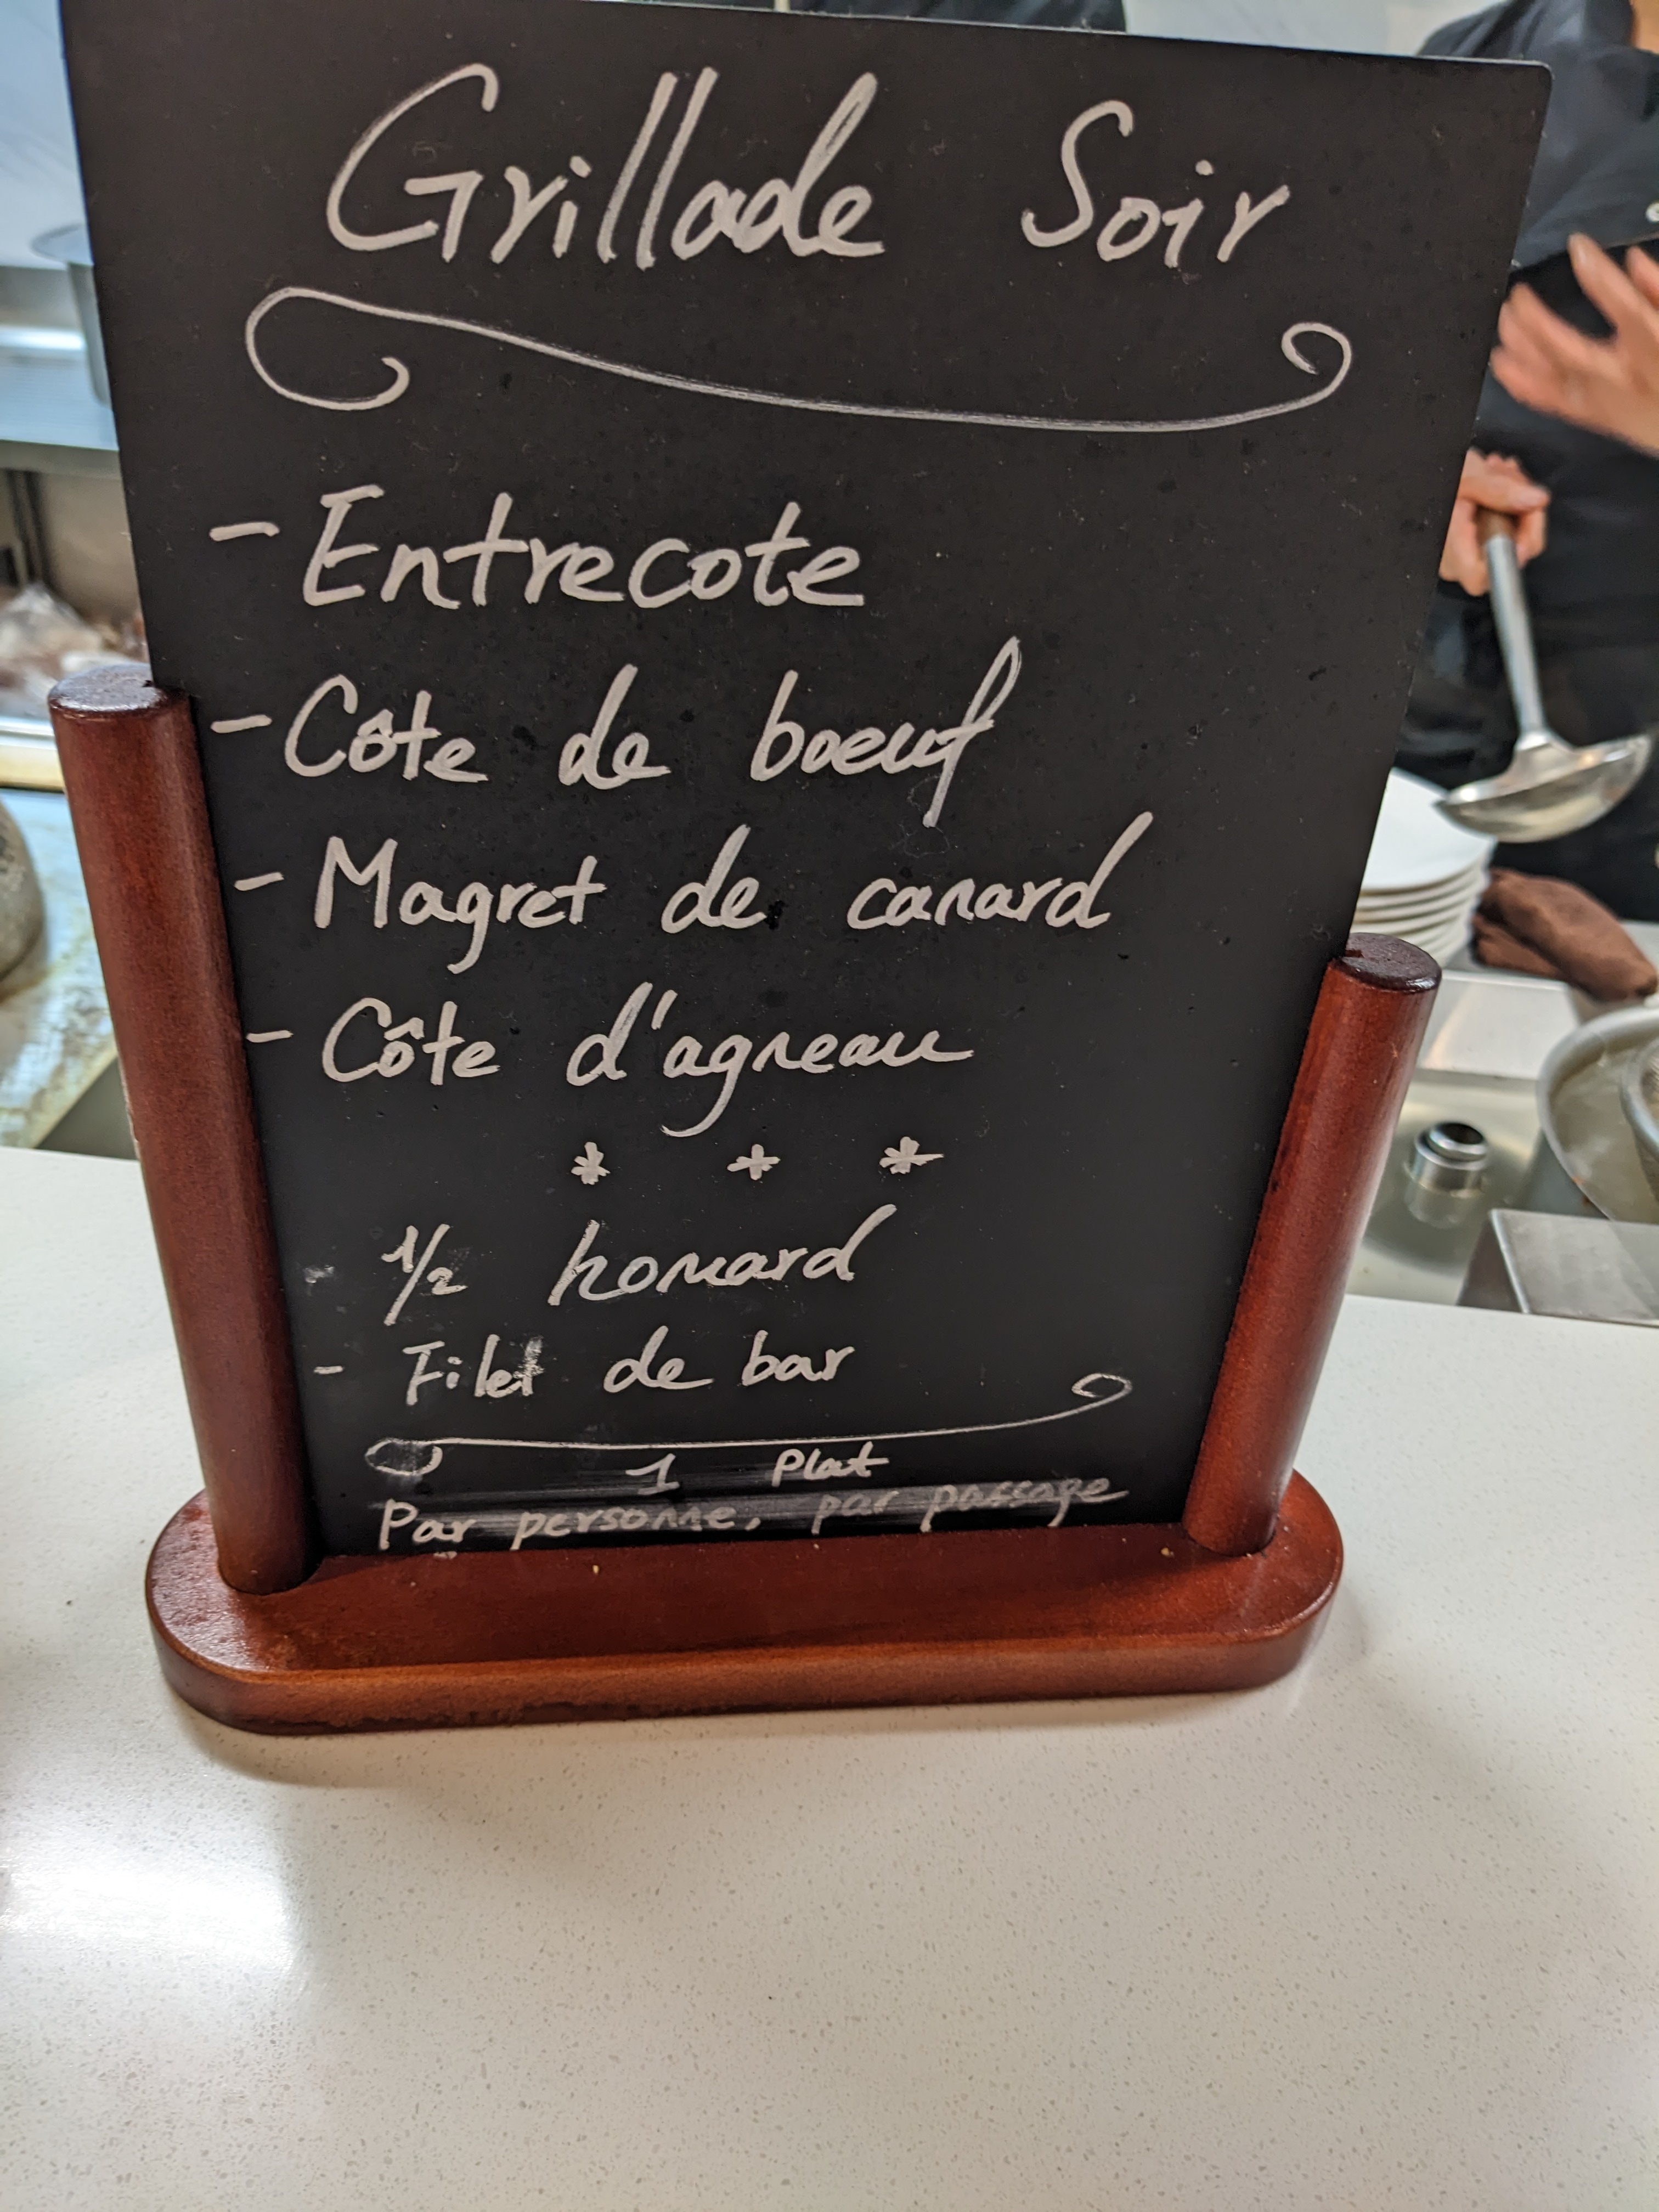 Grillade Soir
- Entrecote
- Côte de boeuf
- Magret de canard
- Côte d'agneau
* + *
1/2 homard
- Filet de bar
1 Plat
Par personne, par passage